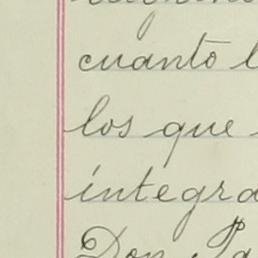 cuanto l
los que
íntegra
Don Pa